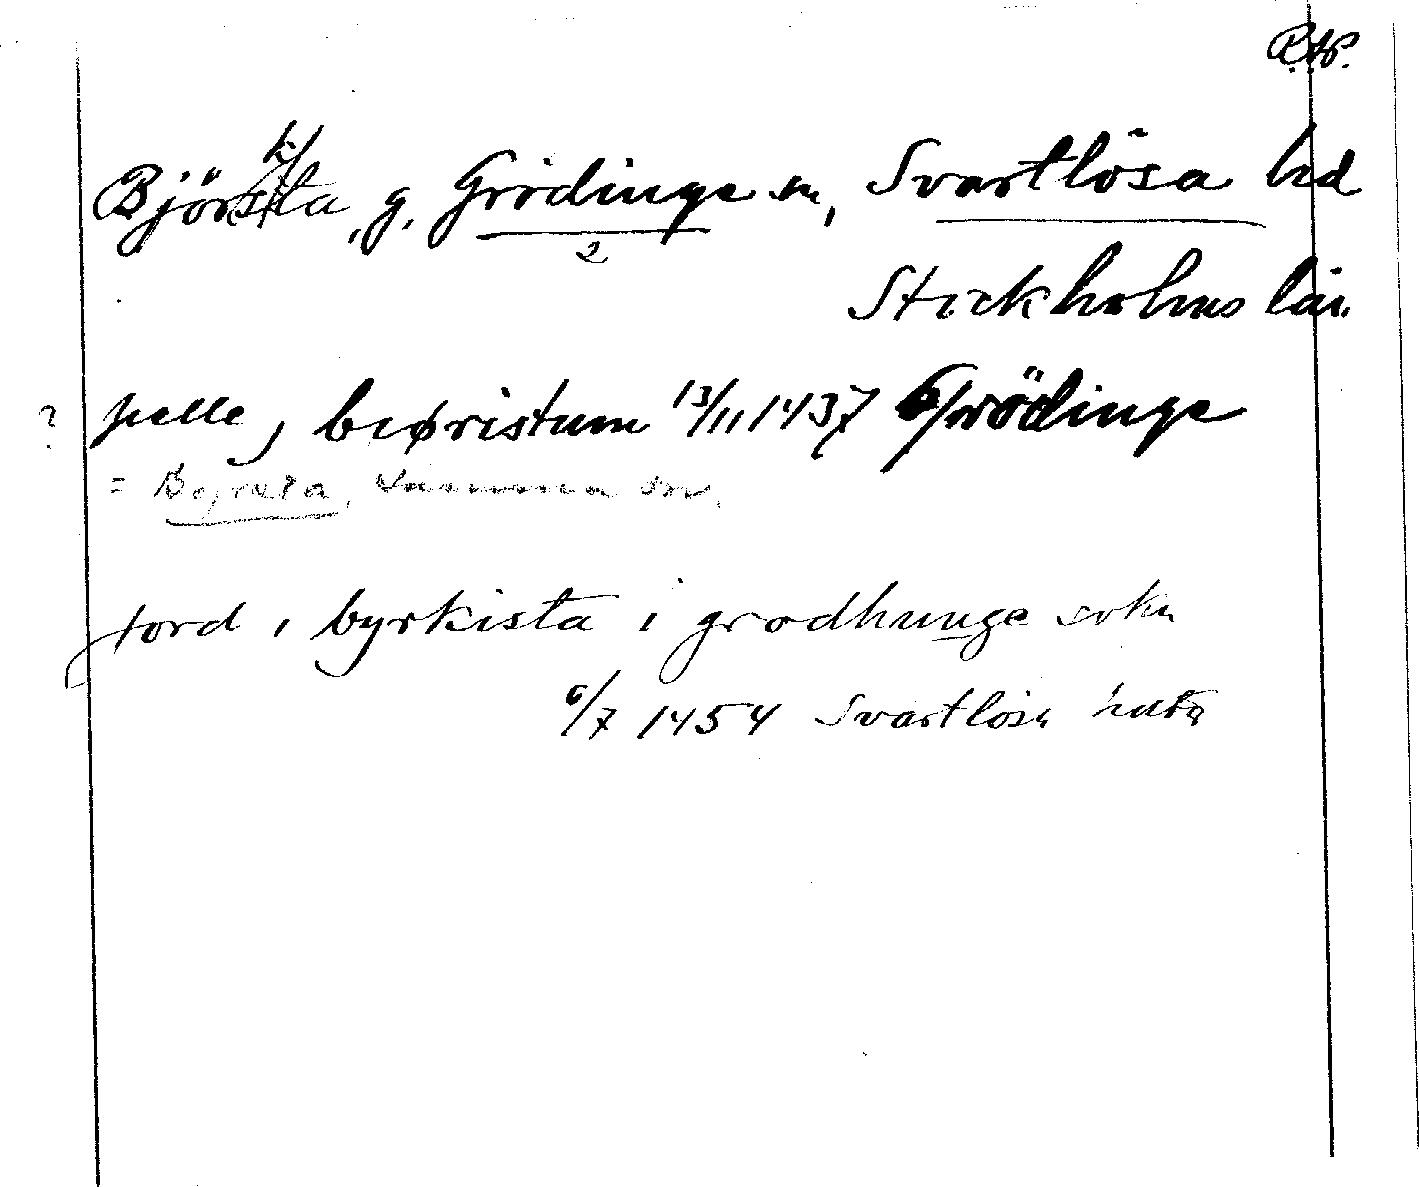 R.A.P.
Björksta, g. Grödinge sn, Svartlösa hd
2
Stockholms län.
? pelle j biøristum 13/11 1437 Grödinge
= Byrsta, samma sn.
tord i byrkista i grodhunge sokn
6/7 1454 Svartlösa